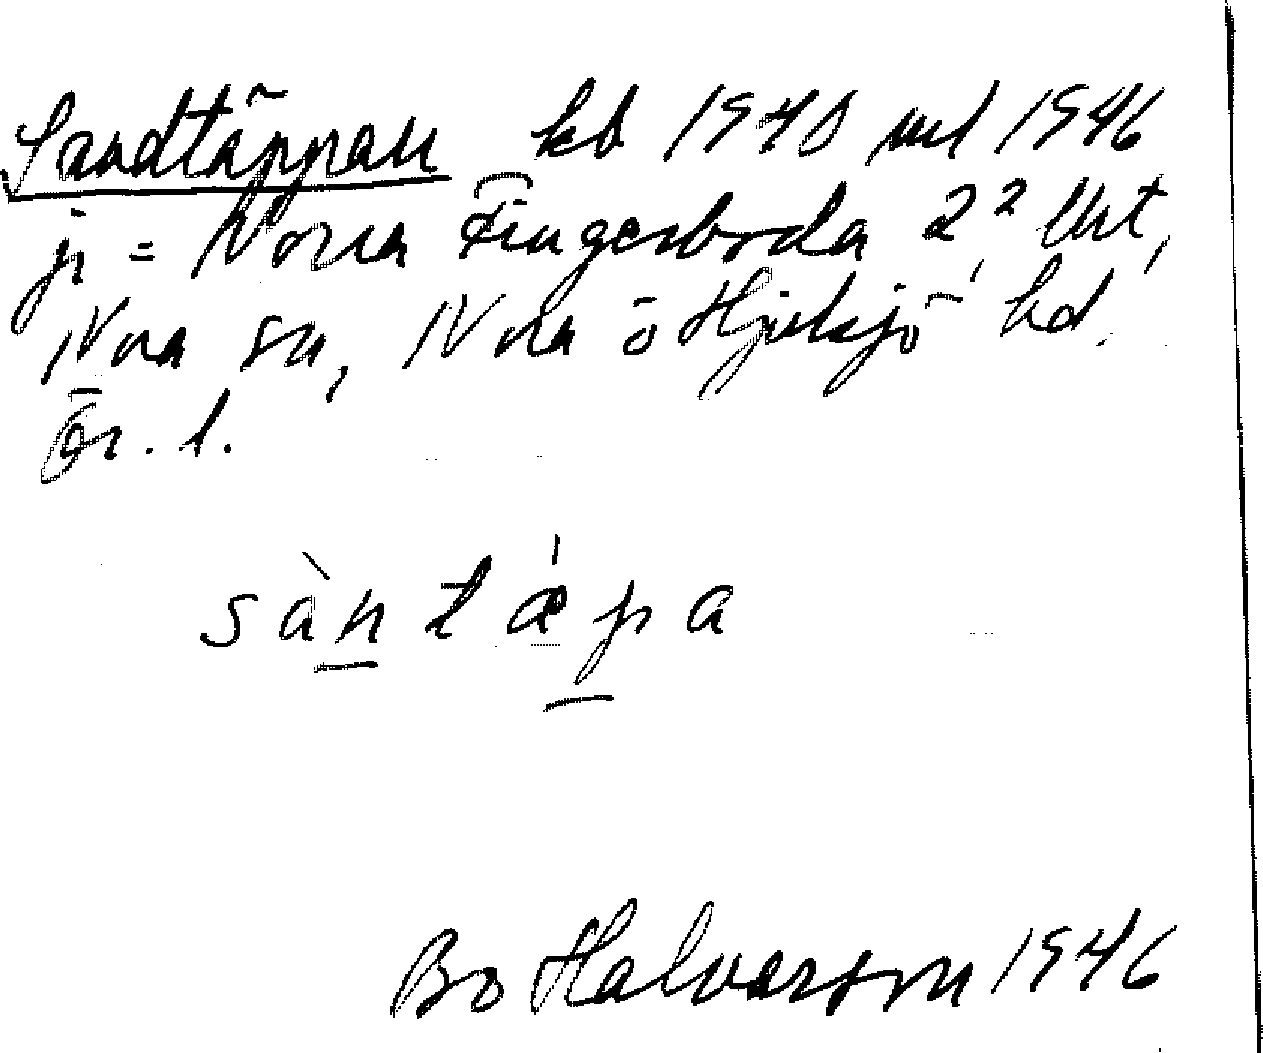 Sandtäppan kb 1940 ml 1946
p = Norra Fingerboda 2² Urt,
Nora sn, Nora o Hjulsjö hd,
Ör. l.
sàntǽpa
Bo Halvarson 1946